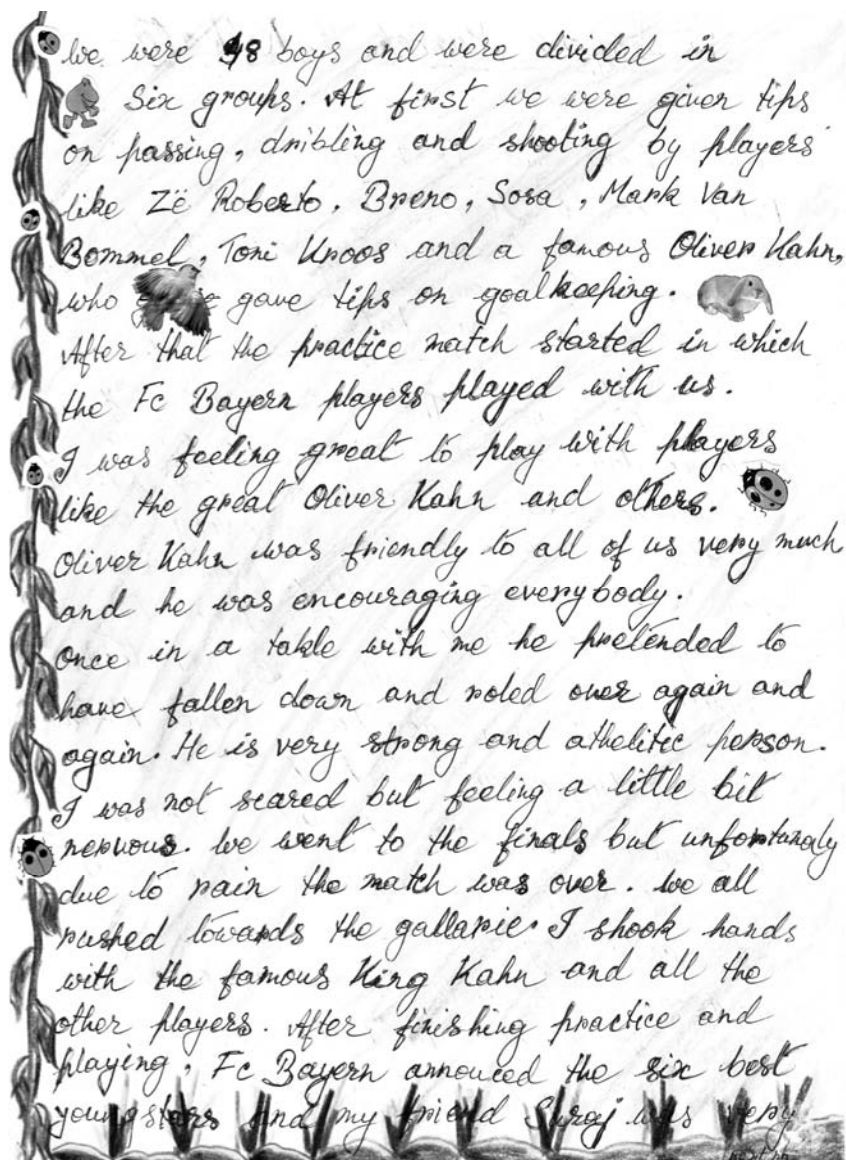 We were 48 boys and were divided in
Six groups. At first we were given tips
on passing, dribling and shooting by players
like Zë Roberto, Breno, Sosa, Mark Van
Bommel, Toni Kroos and a famous Oliver Kahn,
who gave tips on goalkeeping.
After that the practice match started in which
the Fc Bayern players played with us.
I was feeling great to play with players
like the great Oliver Kahn and others.
Oliver Kahn was friendly to all of us very much
and he was encouraging everybody.
once in a takle with me he pretended to
have fallen down and roled over again and
again. He is very strong and athelitic person.
I was not scared but feeling a little bit
nervous. We went to the finals but unfortunaly
due to rain the match was over. We all
rushed towards the gallarie. I shook hands
with the famous King Kahn and all the
other players. After finishing practice and
playing, Fc Bayern annouced the six best
young stars and my friend Suraj was very